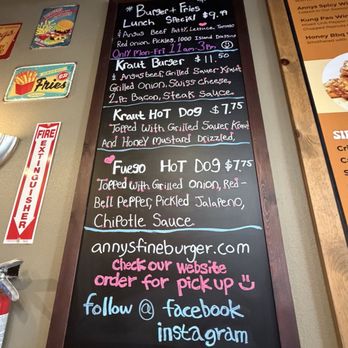 * Burger + Fries *
Lunch Special $9.99
⅓ Angus Beef Patty, Lettuce, Tomato
Red onion, Pickles, 1000 Island Dressing
Only Mon-Fri 11am-3pm
Kraut Burger $11.50
⅓ Angus beef, Grilled Sauer Kraut
Grilled Onion, Swiss Cheese,
2.pc Bacon, Steak Sauce
Kraut Hot Dog $7.75
Topped With Grilled Sauer Kraut
And Honey Mustard Drizzled,
Fuego Hot Dog $7.75
Topped With Grilled Onion, Red-
Bell Pepper, Pickled Jalapeño,
Chipotle Sauce
annysfineburger.com
check our website
order for pick up
follow @ facebook
instagram
Fries
FIRE
EXTINGUISHER
Annys Spicy
Kung Pao Wi
BBQ